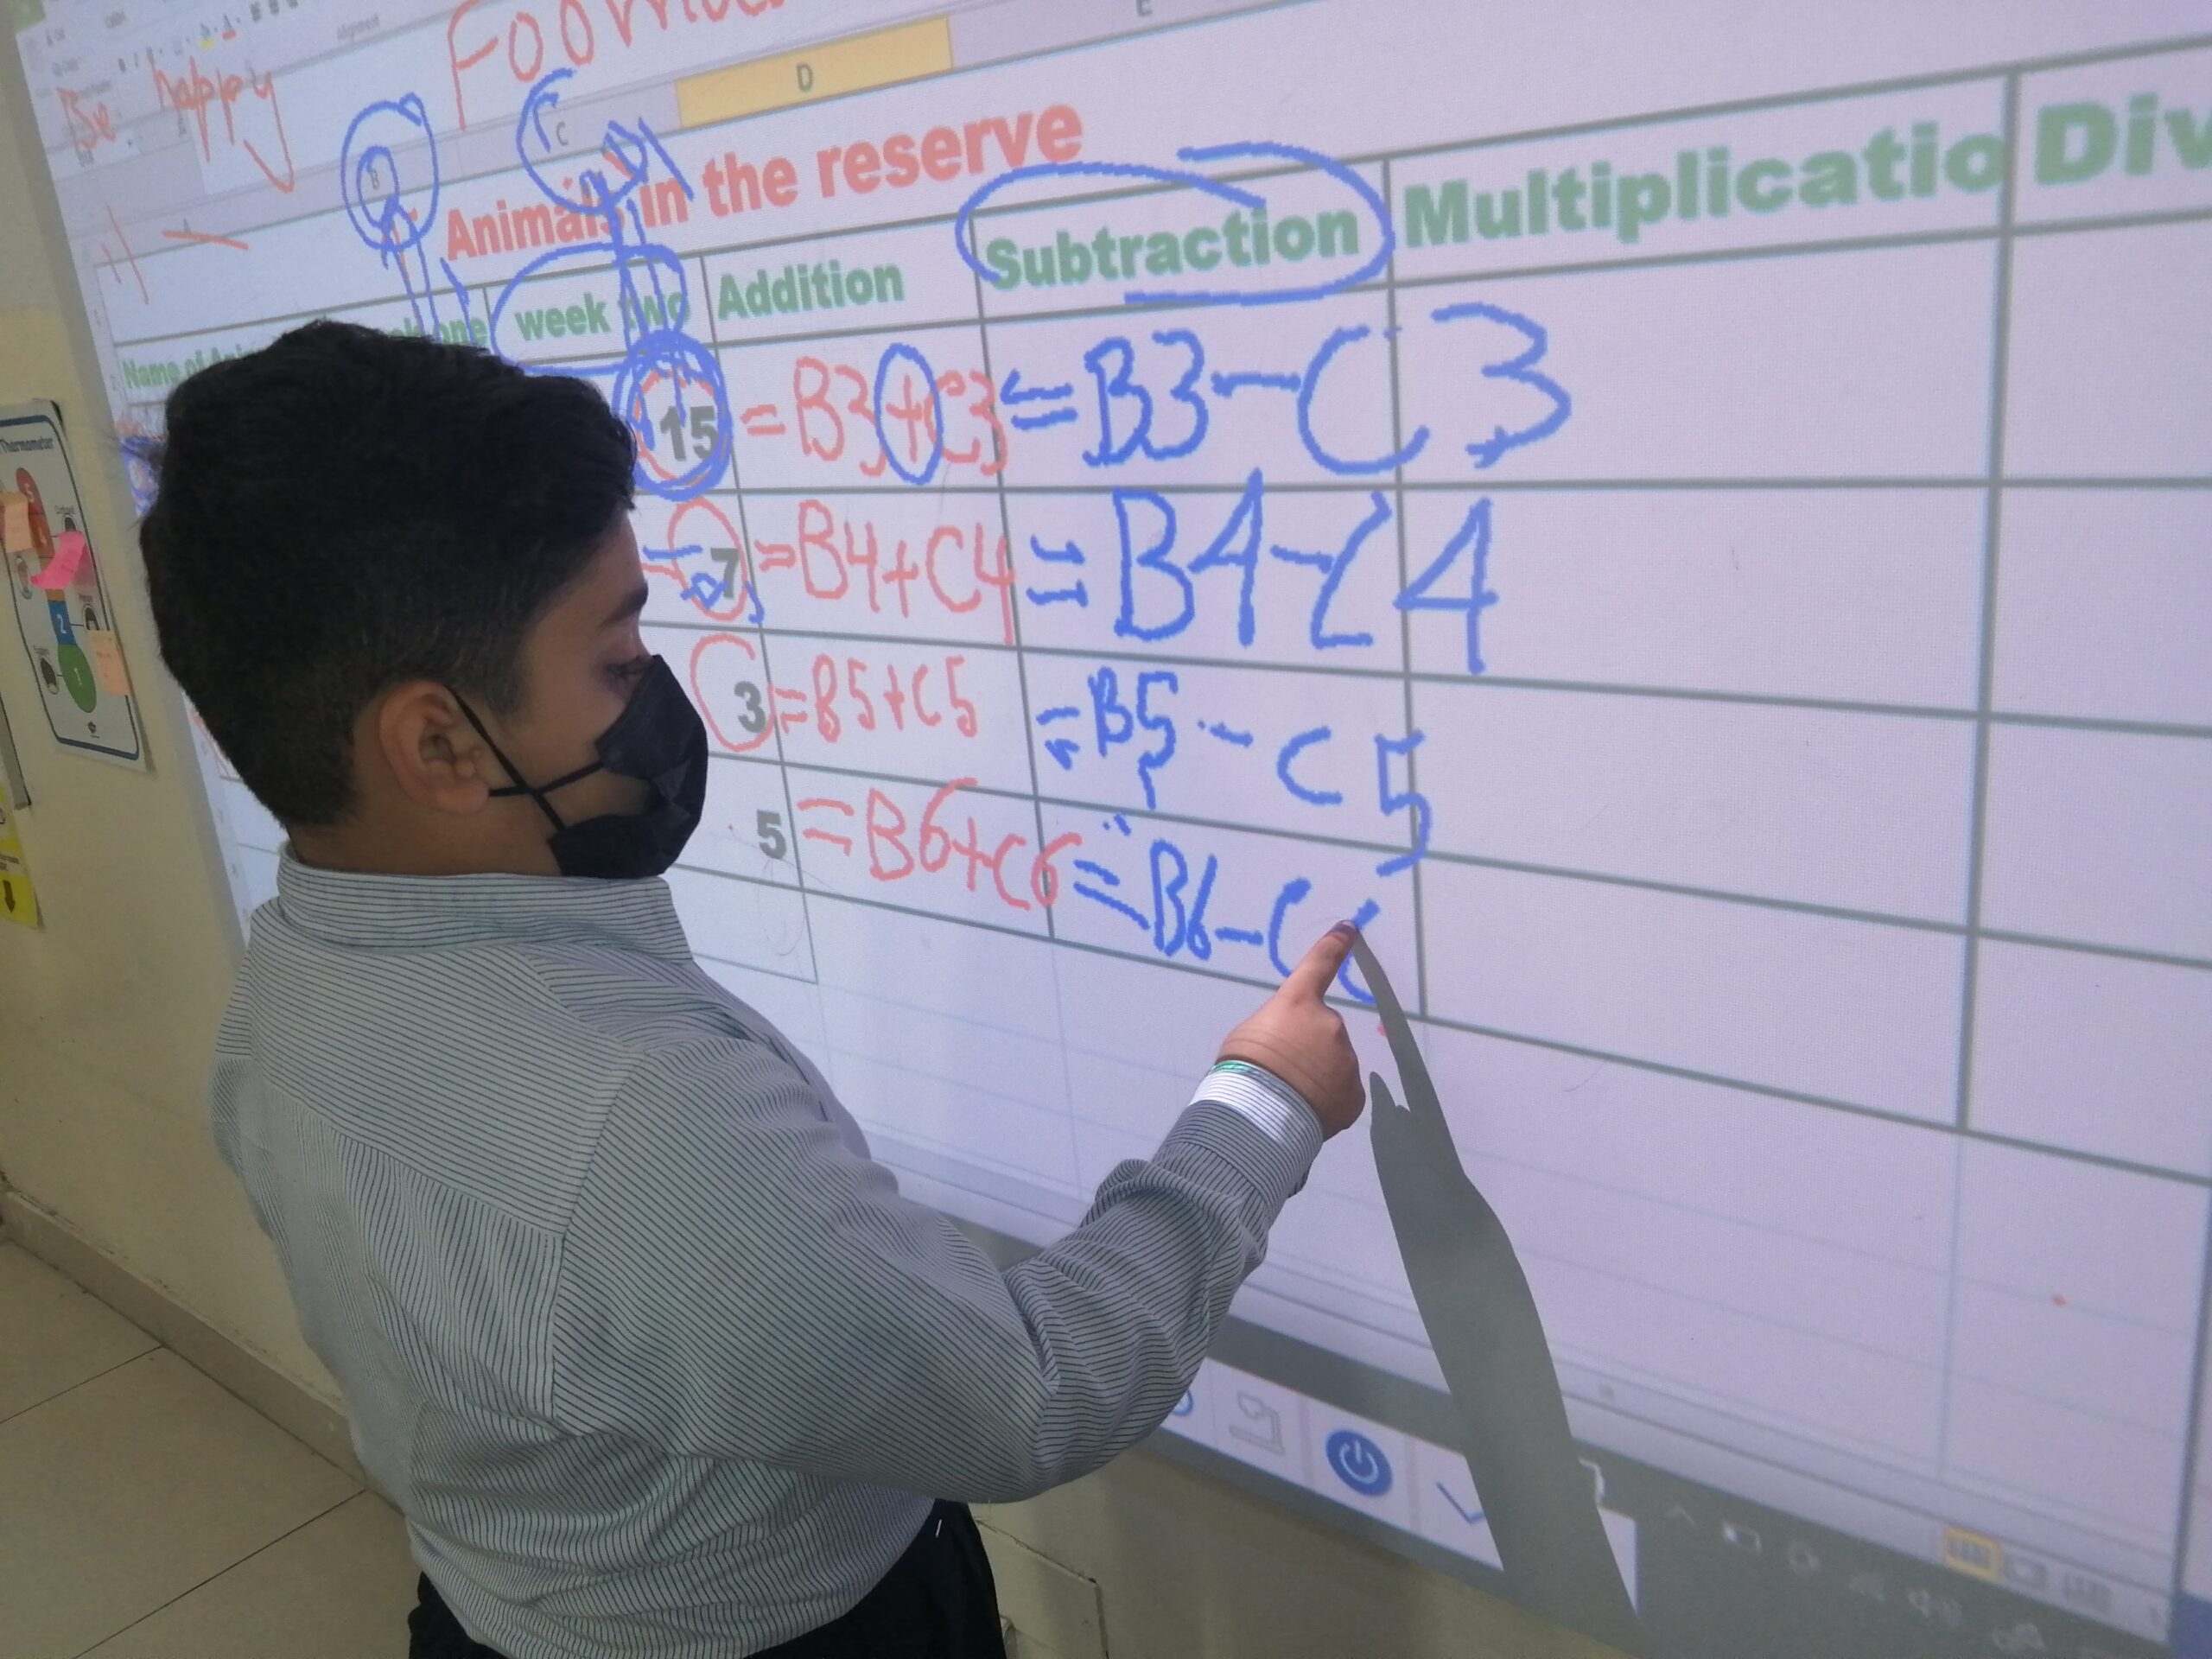 Be happy
D
C
B
Animals in the reserve
Name of week two Addition Subtraction Multiplicatio Div
15 =B3+C3 =B3-C3
7 =B4+C4 =B4-C4
3 =B5+C5 =B5-C5
5 =B6+C6 =B6-C6
Thermometer
5
2
1